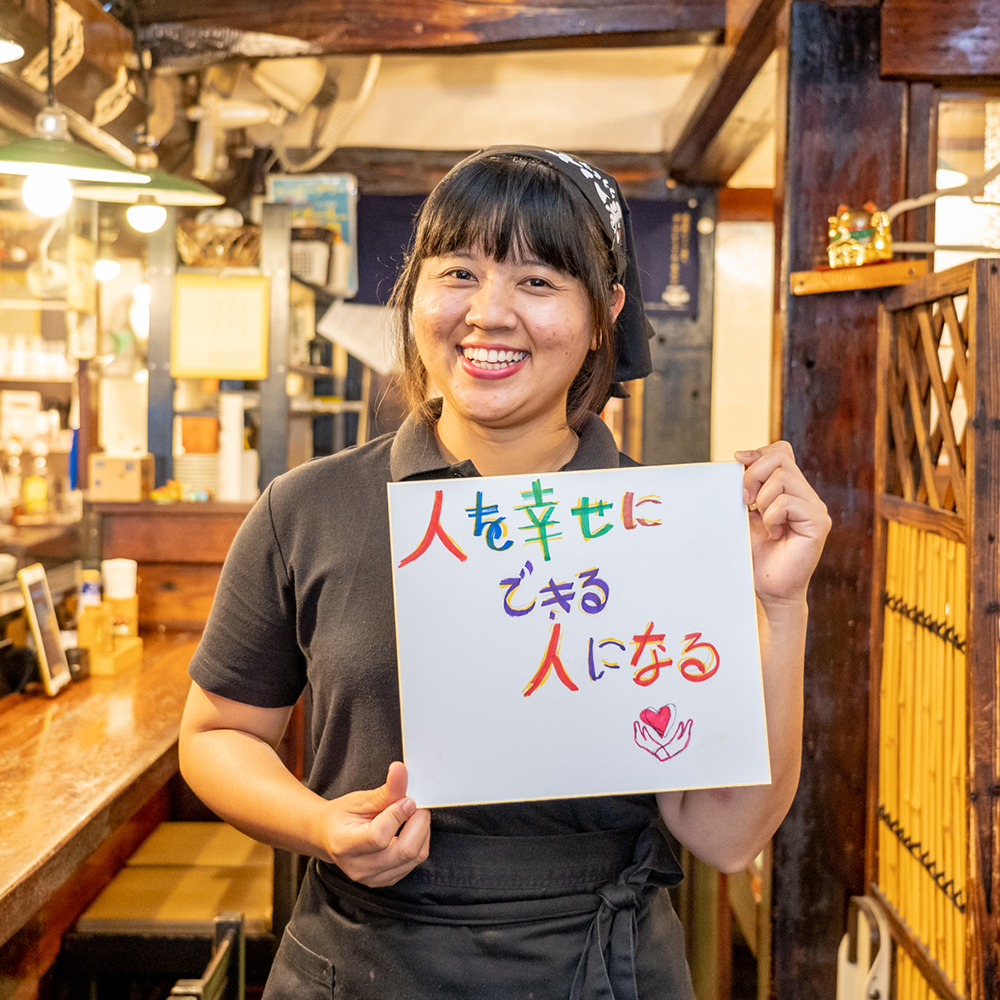 人を幸せに
できる
人になる